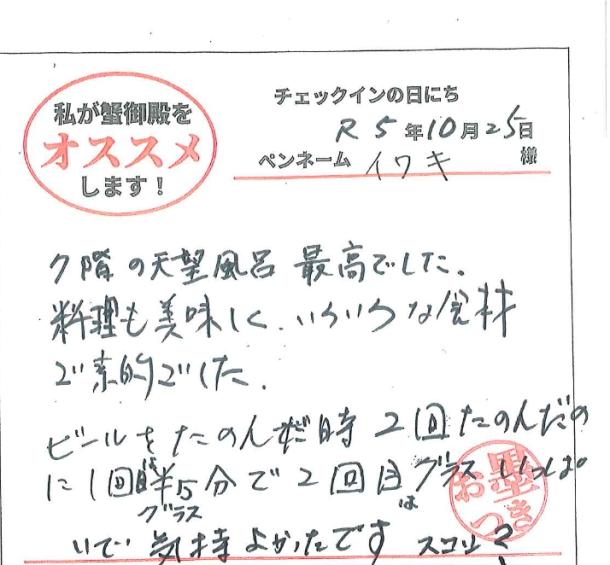 私が蟹御殿を
オススメ
します！
チェックインの日にち
R5年10月25日
ペンネーム イワキ 様
7階の天望風呂 最高でした。
料理も美味しく、いろいろな食材
で素的でした。
ビールをたのんだ時 2回たのんだの
に1回は半分で2回目はグラスいっぱ
グラス
いで 気持よかったです
お墨つき